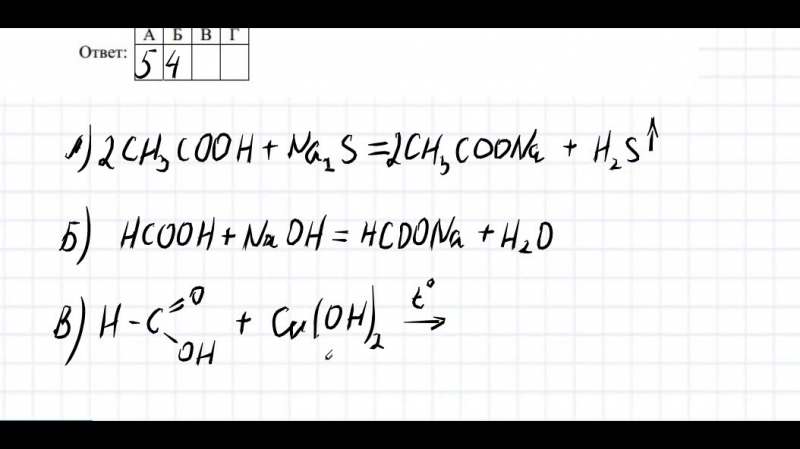 А Б В Г
Ответ: 5 4
А) 2CH₃COOH + Na₂S = 2CH₃COONa + H₂S↑
Б) HCOOH + NaOH = HCOONa + H₂O
В) H-C=O OH + Cu(OH)₂ t° →